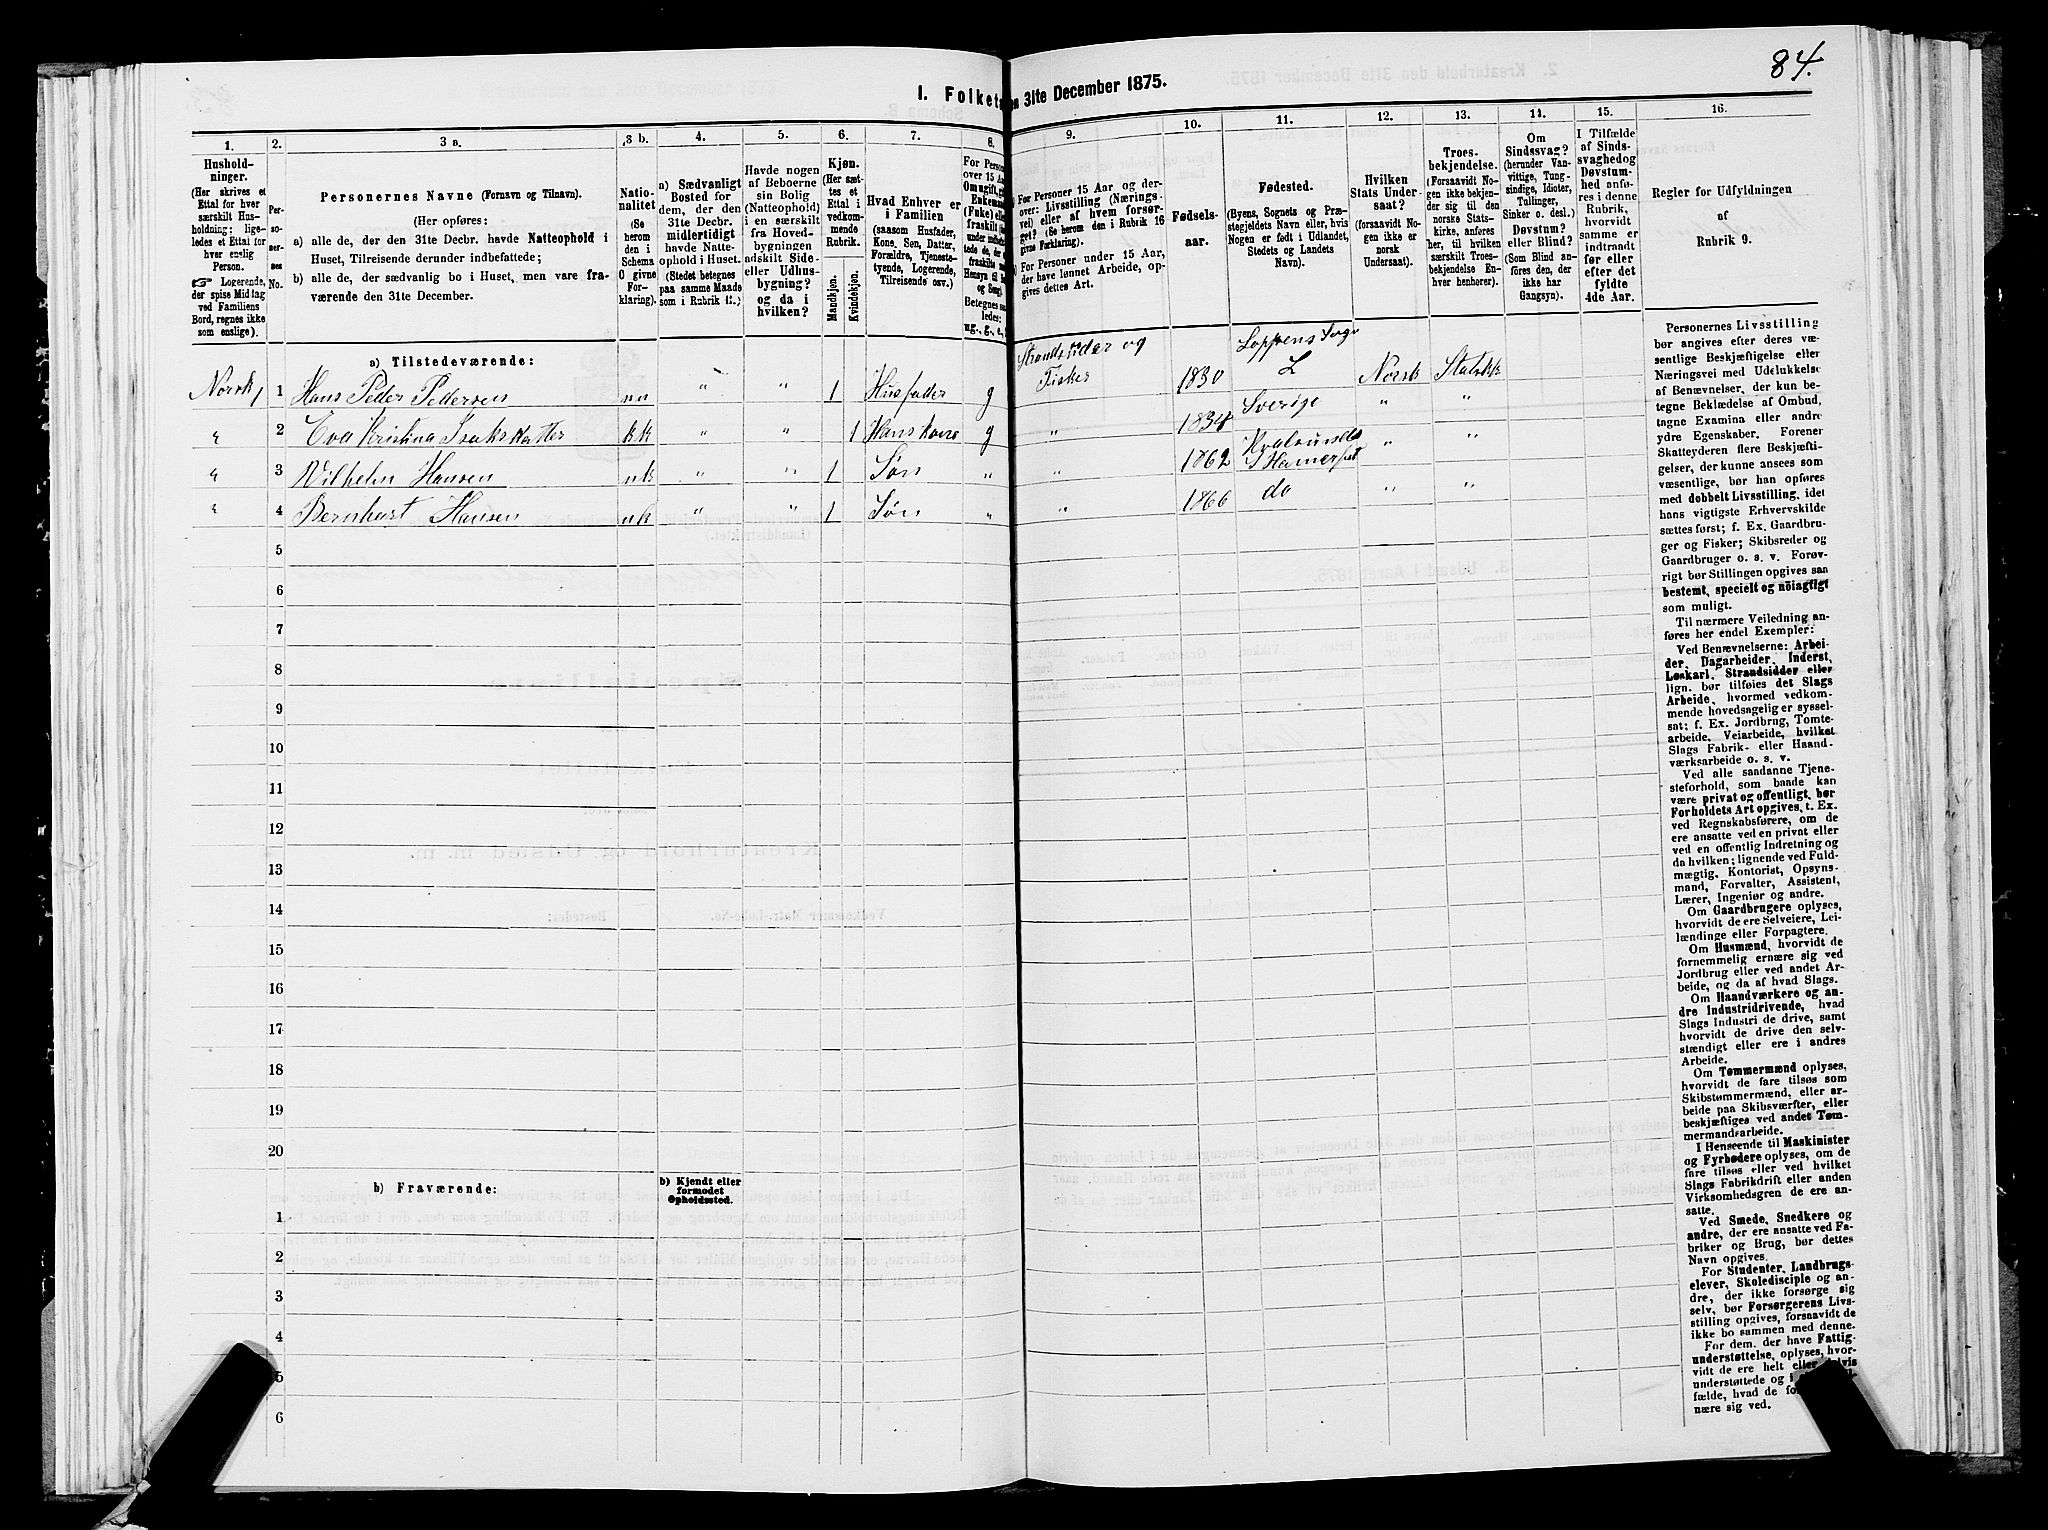 84.
I. Folket
en 31te December 1875.
1. 2. 3 a. 3 b. 4. 5. 6. 7. 8. 9. 10. 11. 12. 13. 14. 15. 16.
Hushold-
ninger.
(Her skrives et
Ettal for hver
særskilt Hus-
holdning; lige-
ledes et Ettal for
hver enslig
Person.
☞ Logerende,
der spise Middag
ved Familiens
Bord, regnes ikke
som enslige).
Per-
so-
ner-
nes
No.
Personernes Navne (Fornavn og Tilnavn).
(Her opføres:
a) alle de, der den 31te Decbr. havde Natteophold i
Huset, Tilreisende derunder indbefattede;
b) alle de, der sædvanlig bo i Huset, men vare fra-
værende den 31te December.
Natio-
nalitet
(Se
herom
den i
Schema
O givne
For-
klaring).
a) Sædvanligt
Bosted for
dem, der den
31te Decbr.
midlertidigt
havde Natte-
ophold i Huset.
(Stedet betegnes
paa samme Maade
som i Rubrik 11.)
Havde nogen
af Beboerne
sin Bolig
(Natteophold)
i en særskilt
fra Hoved-
bygningen
adskilt Side-
eller Udhus-
bygning?
og da i
hvilken?
Kjøn.
(Her sæt-
tes et
Ettal i
vedkom-
mende
Rubrik.
Mandkjøn.
Kvindekjøn.
Hvad Enhver er
i Familien
(saasom Husfader,
Kone, Søn, Datter,
Forældre, Tjeneste-
tyende, Logerende,
Tilreisende osv.)
For Personer
over 15 Aar
Omugift, gift
Enkemand
(Fuke) eller
fraskilt
Betegnes saa
ledes:
ug., g., e.,
For Personer 15 Aar og der-
over: Livsstilling (Nærings-
vei) eller af hvem forsør-
get? (Se herom den i Rubrik 16
givne Forklaring).
For Personer under 15 Aar,
der have lønnet Arbeide, op-
gives dettes Art.
Fødsels-
aar.
Fødested.
(Byens, Sognets og Præ-
stegjeldets Navn eller, hvis
Nogen er født i Udlandet,
Stedets og Landets
Navn).
Hvilken
Stats Under-
saat?
(forsaavidt No-
gen ikke er
norsk
Undersaat).
Troes-
bekjendelse.
(Forsaavidt No-
gen ikke bekjen-
der sig til den
norske Stats-
kirke, anføres
her, til hvilken
særskilt Troes-
bekjendelse En-
hver henhører).
Om
Sindssvag?
(herunder Van-
vittige, Tung-
sindige, Idioter,
Tullinger,
Sinker o. desl.)
Døvstum?
eller Blind?
(Som Blind an-
føres den, der
ikke har
Gangsyn).
I Tilfælde
af Sinds-
svaghed og
Døvstum-
hed anfø-
res i denne
Rubrik,
hvorvidt
samme er
indtraadt
før eller
efter det
fyldte
4de Aar.
Regler for Udfyldningen
af
Rubrik 9.
a) Tilstedeværende:
Norsk 1 1 Hans Peder Pedersen nn " " 1 Husfader g Strandsider og Fisker 1830 Loppens Sogn L Norsk Statskk
" 2 Eva Kristina Isaksdatter kk " " 1 Hans kone g " 1834 Sverige " "
" 3 Vilhelm Hansen nk " " 1 Søn " " 1862 Kvalsund S Hamerfest " "
" 4 Bernhart Hansen nk " " 1 Søn " " 1866 do " "
5
6
7
8
9
10
11
12
13
14
15
16
17
18
19
20
b) Fraværende:
b) Kjendt eller
formodet
Opholdssted.
1
2
3
4
5
6
Personernes Livsstilling
bør angives efter deres væ-
sentlige Beskjæftigelse eller
Næringsvei med Udelukkelse
af Benævnelser, der kun be-
tegne Beklædelse af Ombud,
tagne Examina eller andre
ydre Egenskaber. Forener
Skatteyderen flere Beskjæfti-
gelser, der kunne ansees som
væsentlige, bør han opføres
med dobbelt Livsstilling, idet
hans vigtigste Erhvervskilde
sættes først; f. Ex. Gaardbru-
ger og Fisker; Skibsreder og
Gaardbruger o. s. v. Forøv-
rigt bør Stillingen opgives saa
bestemt, specielt og nöiagtigt
som muligt.
Til nærmere Veiledning an-
føres her endel Exempler:
Ved Benævnelserne: Arbei-
der, Dagarbeider, Inderst,
Løskarl, Strandsidder eller
lign. bør tilføies det Slags
Arbeide, hvormed vedkom-
mende hovedsagelig er syssel-
sat; f. Ex. Jordbrug, Tomte-
arbeide, Veiarbeide, hvilket
Slags Fabrik- eller Haand-
værksarbeide o. s. v.
Ved alle saadanne Tjene-
steforhold, som baade kan
være privat og offentligt, bør
Forholdets Art opgives, t. Ex.
ved Regnskabsførere, om de
ere ansatte ved en privat eller
ved en offentlig Indretning og
da hvilken; lignende ved Fuld-
mægtig, Kontorist, Opsyns-
mand, Forvalter, Assistent,
Lærer, Ingeniør og andre.
Om Gaardbrugere oplyses,
hvorvidt de ere Selveiere, Lei-
lændinge eller Forpagtere.
Om Husmænd, hvorvidt de
fornemmelig ernære sig ved
Jordbrug eller ved andet Ar-
beide, og da af hvad Slags.
Om Haandværkere og an-
dre Industridrivende, hvad
Slags Industri de drive, samt
hvorvidt de drive den selv-
stændigt eller ere i andres
Arbeide.
Om Tømmermænd oplyses,
hvorvidt de fare tilsøs som
Skibstømmermænd, eller ar-
beide paa Skibsværfter, eller
beskjæftiges ved andet Tøm-
mermandsarbeide.
I Henseende til Maskinister
og Fyrbødere oplyses, om de
fare tilsøs eller ved hvilket
Slags Fabrikdrift eller anden
Virksomhedsgren de ere an-
satte.
Ved Smede, Snedkere og
andre, der ere ansatte ved Fa-
briker og Brug, bør dettes
Navn opgives.
For Studenter, Landbrugs-
elever, Skoledisciple og an-
dre, der ikke forsørge sig
selv, bør Forsørgerens Livs-
stilling opgives, forsaavidt de
ikke bo sammen med denne.
For dem, der have Fattig-
understøttelse, oplyses, hvor-
vidt de ere helt eller delvis
understøttede og i
fælde, hvad de
nære sig ved.